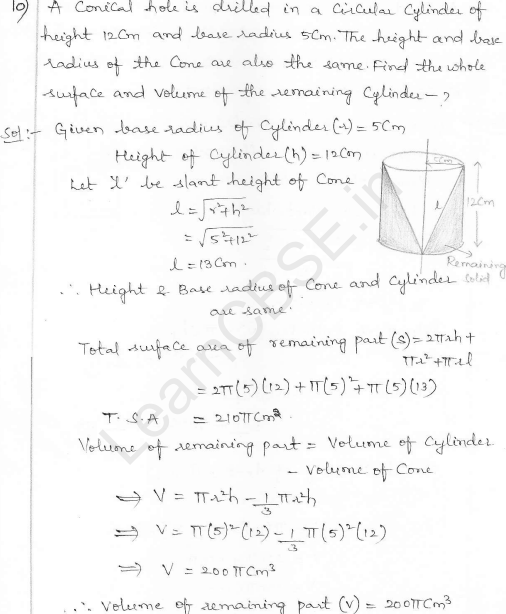 10) A Conical hole is drilled in a Circular Cylinder of
height 12Cm and base radius 5Cm. The height and base
radius of the Cone are also the same. Find the whole
surface and Volume of the remaining Cylinder - ?
Sol:- Given base radius of Cylinder (r) = 5Cm
Height of Cylinder (h) = 12Cm
Let 'l' be slant height of Cone
l = √r²+h²
= √5²+12²
l = 13Cm.
5Cm
l
12Cm
Remaining
Solid
∴ Height & Base radius of Cone and Cylinder
are same.
Total surface area of remaining part (S) = 2πrh +
πr² + πrl
= 2π(5)(12) + π(5)² + π(5)(13)
T.S.A = 210πCm²
Volume of remaining part = Volume of Cylinder
- Volume of Cone
⇒ V = πr²h - 1/3 πr²h
⇒ V = π(5)²(12) - 1/3 π(5)²(12)
⇒ V = 200πCm³
∴ Volume of remaining part (V) = 200πCm³
LearnCBSE.in